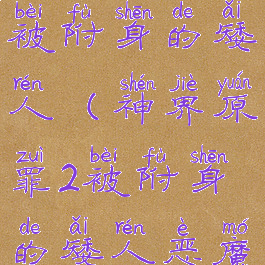 bèi fù shēn de ǎi
被附身的矮
rén shén jiè yuán
人(神界原
zuì bèi fù shēn
罪2被附身
de ǎi rén è mó
的矮人恶魔